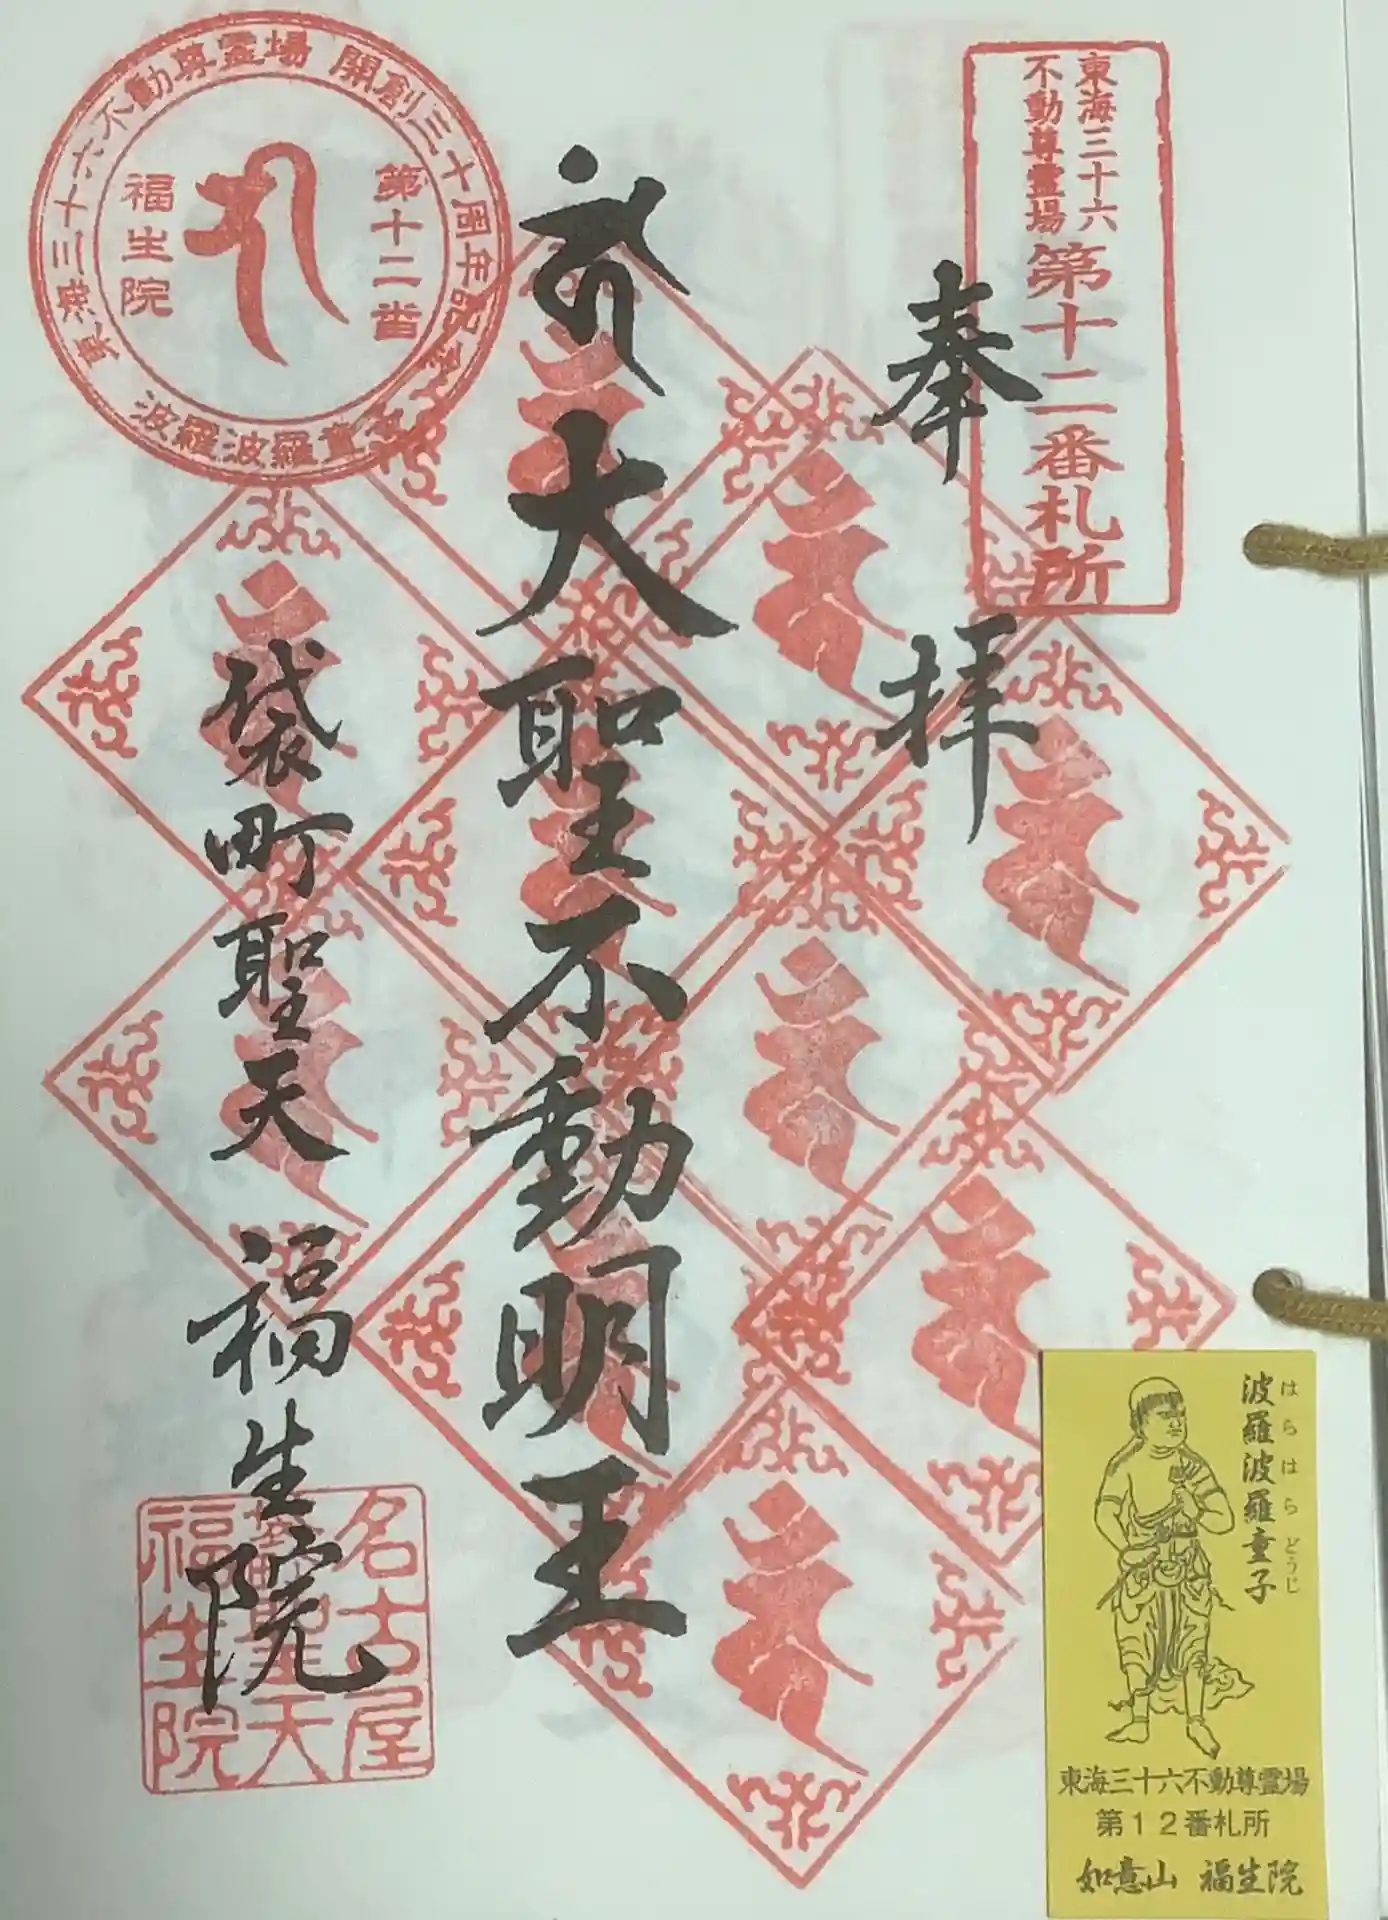 東海三十六
不動尊霊場
第十二番札所
奉拝
大聖不動明王
袋町聖天 福生院
東海三十六不動尊霊場 開創三十周年記念
第十二番
福生院
波羅波羅童子
名古屋
聖天
福生院
波羅波羅童子
はらはらどうじ
東海三十六不動尊霊場
第12番札所
如意山 福生院